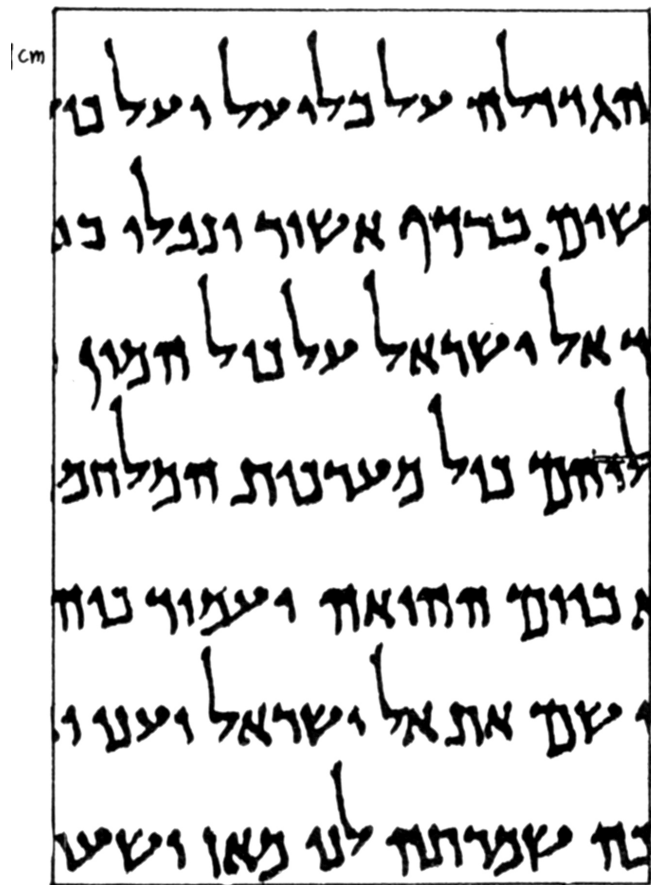 הגדולה על בליעל ועל כו
שים . ברדף אשור ונפלו בנ
ד אל ישראל על כול המון
ליהם כול מערכות המלחמ
א ביום ההואה יעמוד כוה
ו שם את אל ישראל וענו ו
כה שמרתה לנו מאז ושער